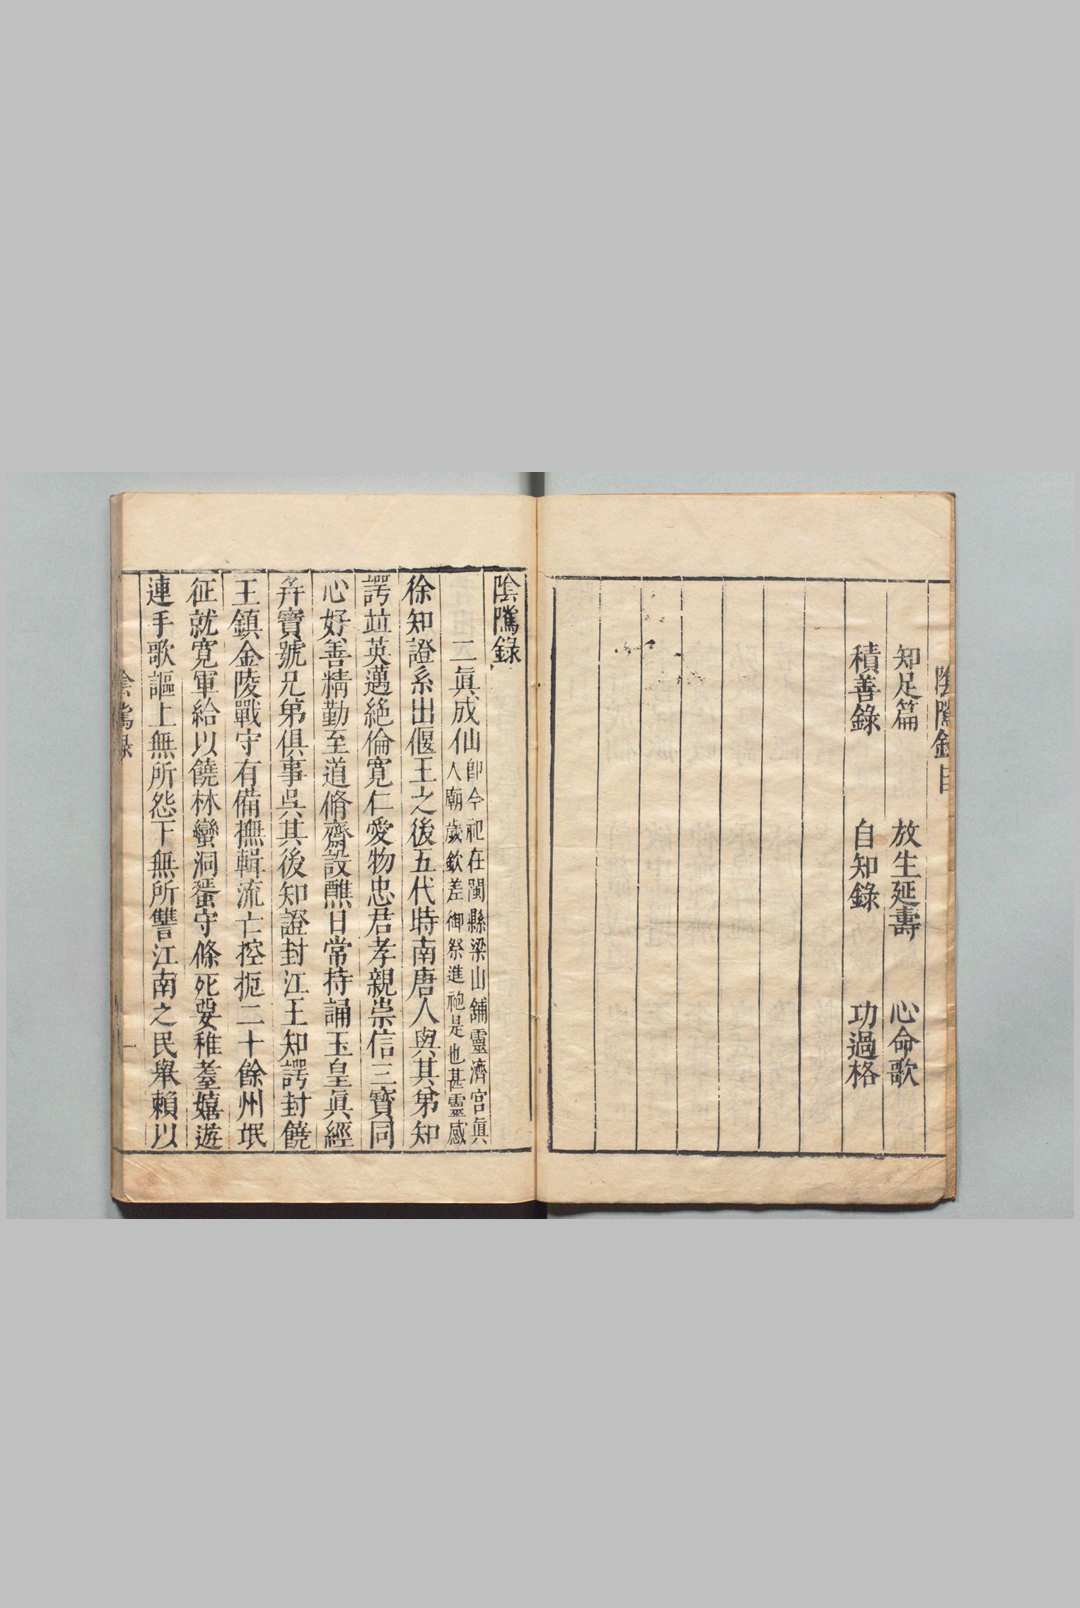 陰騭錄目
知足篇　放生延壽　心命歌
積善錄　自知錄　功過格
陰騭錄
二眞成仙
卽今祀在閩縣梁山鋪靈濟宮眞
人廟歲欽差御祭進袍是也甚靈感
徐知證系出偃王之後五代時南唐人與其弟知
諤竝英邁絶倫寛仁愛物忠君孝親崇信三寶同
心好善精勤至道脩齋設醮日常持誦玉皇眞經
并寶號兄弟俱事吳其後知證封江王知諤封饒
王鎮金陵戰守有備撫輯流亡控扼二十餘州垊
征就寛軍給以饒林蠻洞蜑守條死要稚耋嬉遊
連手歌謳上無所怨下無所讐江南之民舉賴以
陰騭錄
一